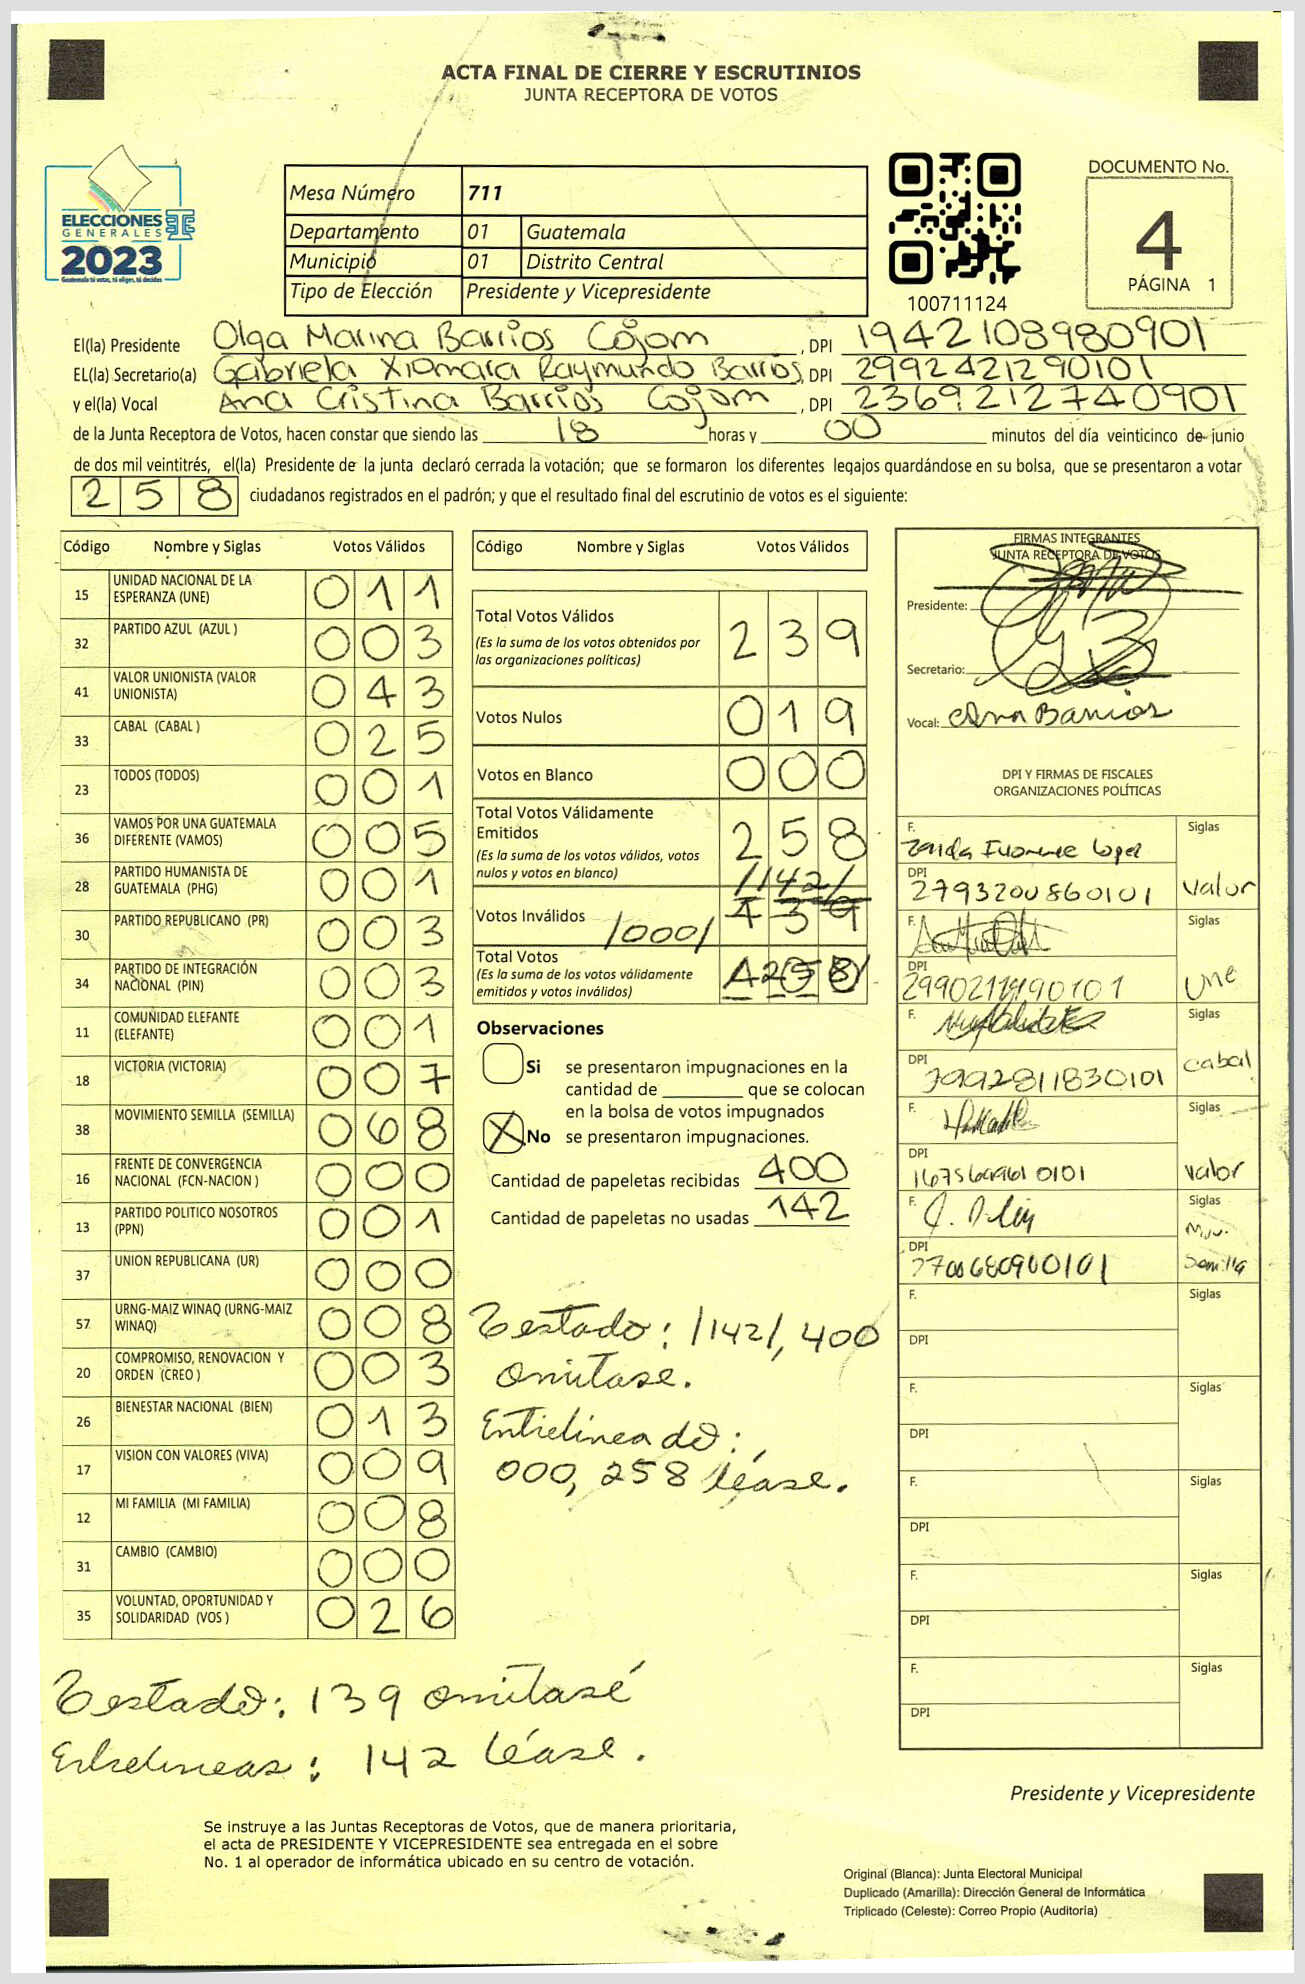 ACTA FINAL DE CIERRE Y ESCRUTINIOS
JUNTA RECEPTORA DE VOTOS
ELECCIONES
GENERALES
2023
Guatemala tú votas, tú eliges, tú decides
Mesa Número 711
Departamento 01 Guatemala
Municipio 01 Distrito Central
Tipo de Elección Presidente y Vicepresidente
100711124
DOCUMENTO No.
4
PÁGINA 1
El(la) Presidente Olga Marina Barrios Cojom, DPI 1942108980901
EL(la) Secretario(a) Gabriela Xiomara Raymundo Barrios, DPI 2992421290101
y el(la) Vocal Ana Cristina Barrios Cojom, DPI 2369212740901
de la Junta Receptora de Votos, hacen constar que siendo las 18 horas y 00 minutos del día veinticinco de junio
de dos mil veintitrés, el(la) Presidente de la junta declaró cerrada la votación; que se formaron los diferentes legajos guardándose en su bolsa, que se presentaron a votar
258 ciudadanos registrados en el padrón; y que el resultado final del escrutinio de votos es el siguiente:
Código Nombre y Siglas Votos Válidos
15 UNIDAD NACIONAL DE LA ESPERANZA (UNE) 011
32 PARTIDO AZUL (AZUL ) 003
41 VALOR UNIONISTA (VALOR UNIONISTA) 043
33 CABAL (CABAL ) 025
23 TODOS (TODOS) 001
36 VAMOS POR UNA GUATEMALA DIFERENTE (VAMOS) 005
28 PARTIDO HUMANISTA DE GUATEMALA (PHG) 001
30 PARTIDO REPUBLICANO (PR) 003
34 PARTIDO DE INTEGRACIÓN NACIONAL (PIN) 003
11 COMUNIDAD ELEFANTE (ELEFANTE) 001
18 VICTORIA (VICTORIA) 007
38 MOVIMIENTO SEMILLA (SEMILLA) 068
16 FRENTE DE CONVERGENCIA NACIONAL (FCN-NACION ) 000
13 PARTIDO POLITICO NOSOTROS (PPN) 001
37 UNION REPUBLICANA (UR) 000
57 URNG-MAIZ WINAQ (URNG-MAIZ WINAQ) 008
20 COMPROMISO, RENOVACION Y ORDEN (CREO ) 003
26 BIENESTAR NACIONAL (BIEN) 013
17 VISION CON VALORES (VIVA) 009
12 MI FAMILIA (MI FAMILIA) 008
31 CAMBIO (CAMBIO) 000
35 VOLUNTAD, OPORTUNIDAD Y SOLIDARIDAD (VOS ) 026
Testado: 139 omitase
Entrelineas: 142 léase.
Código Nombre y Siglas Votos Válidos
Total Votos Válidos 239
(Es la suma de los votos obtenidos por
las organizaciones políticas)
Votos Nulos 019
Votos en Blanco 000
Total Votos Válidamente
Emitidos 258
(Es la suma de los votos válidos, votos
nulos y votos en blanco)
/142/
Votos Inválidos /000/
Total Votos
(Es la suma de los votos válidamente
emitidos y votos inválidos)
Observaciones
Si se presentaron impugnaciones en la
cantidad de ________ que se colocan
en la bolsa de votos impugnados
X No se presentaron impugnaciones.
Cantidad de papeletas recibidas 400
Cantidad de papeletas no usadas 142
Testado: /142/, 400
omitase.
Entrelineado:
000, 258 léase.
FIRMAS INTEGRANTES
JUNTA RECEPTORA DE VOTOS
Presidente:
Secretario:
Vocal: Ana Barrios
DPI Y FIRMAS DE FISCALES
ORGANIZACIONES POLÍTICAS
F. Siglas
DPI 2793200860101 Valor
F. Siglas
DPI Une
F. Siglas
DPI Cabal
F. Siglas
DPI Valor
F. Siglas
DPI Semilla
F. Siglas
DPI
F. Siglas
DPI
F. Siglas
DPI
F. Siglas
DPI
F. Siglas
DPI
Presidente y Vicepresidente
Se instruye a las Juntas Receptoras de Votos, que de manera prioritaria,
el acta de PRESIDENTE Y VICEPRESIDENTE sea entregada en el sobre
No. 1 al operador de informática ubicado en su centro de votación.
Original (Blanca): Junta Electoral Municipal
Duplicado (Amarilla): Dirección General de Informática
Triplicado (Celeste): Correo Propio (Auditoría)